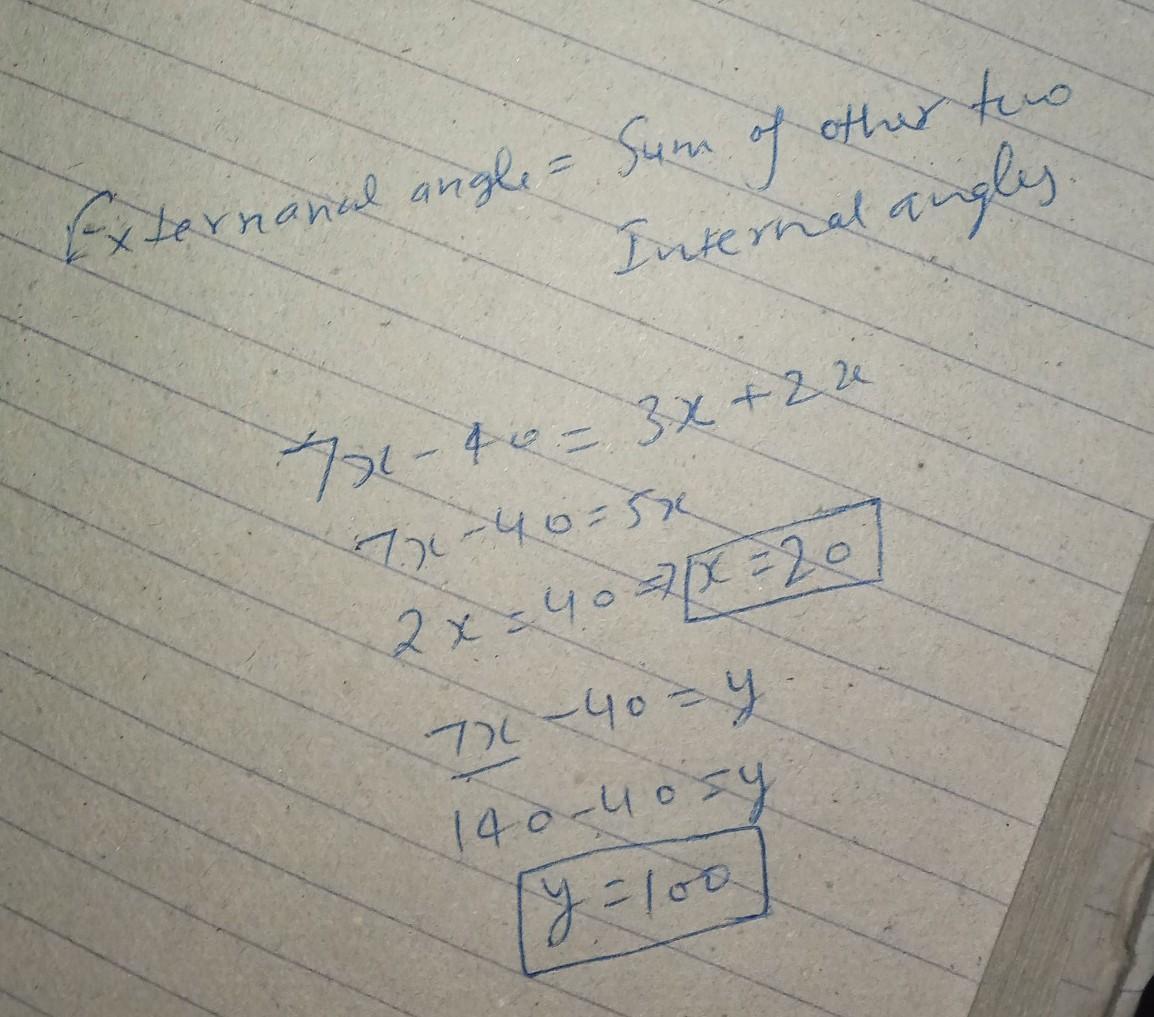 Externanal angle = Sum of other two
Internal angles.
7x - 40 = 3x + 2x
7x - 40 = 5x
2x = 40 ⇒ x = 20
7x - 40 = y
140 - 40 = y
y = 100